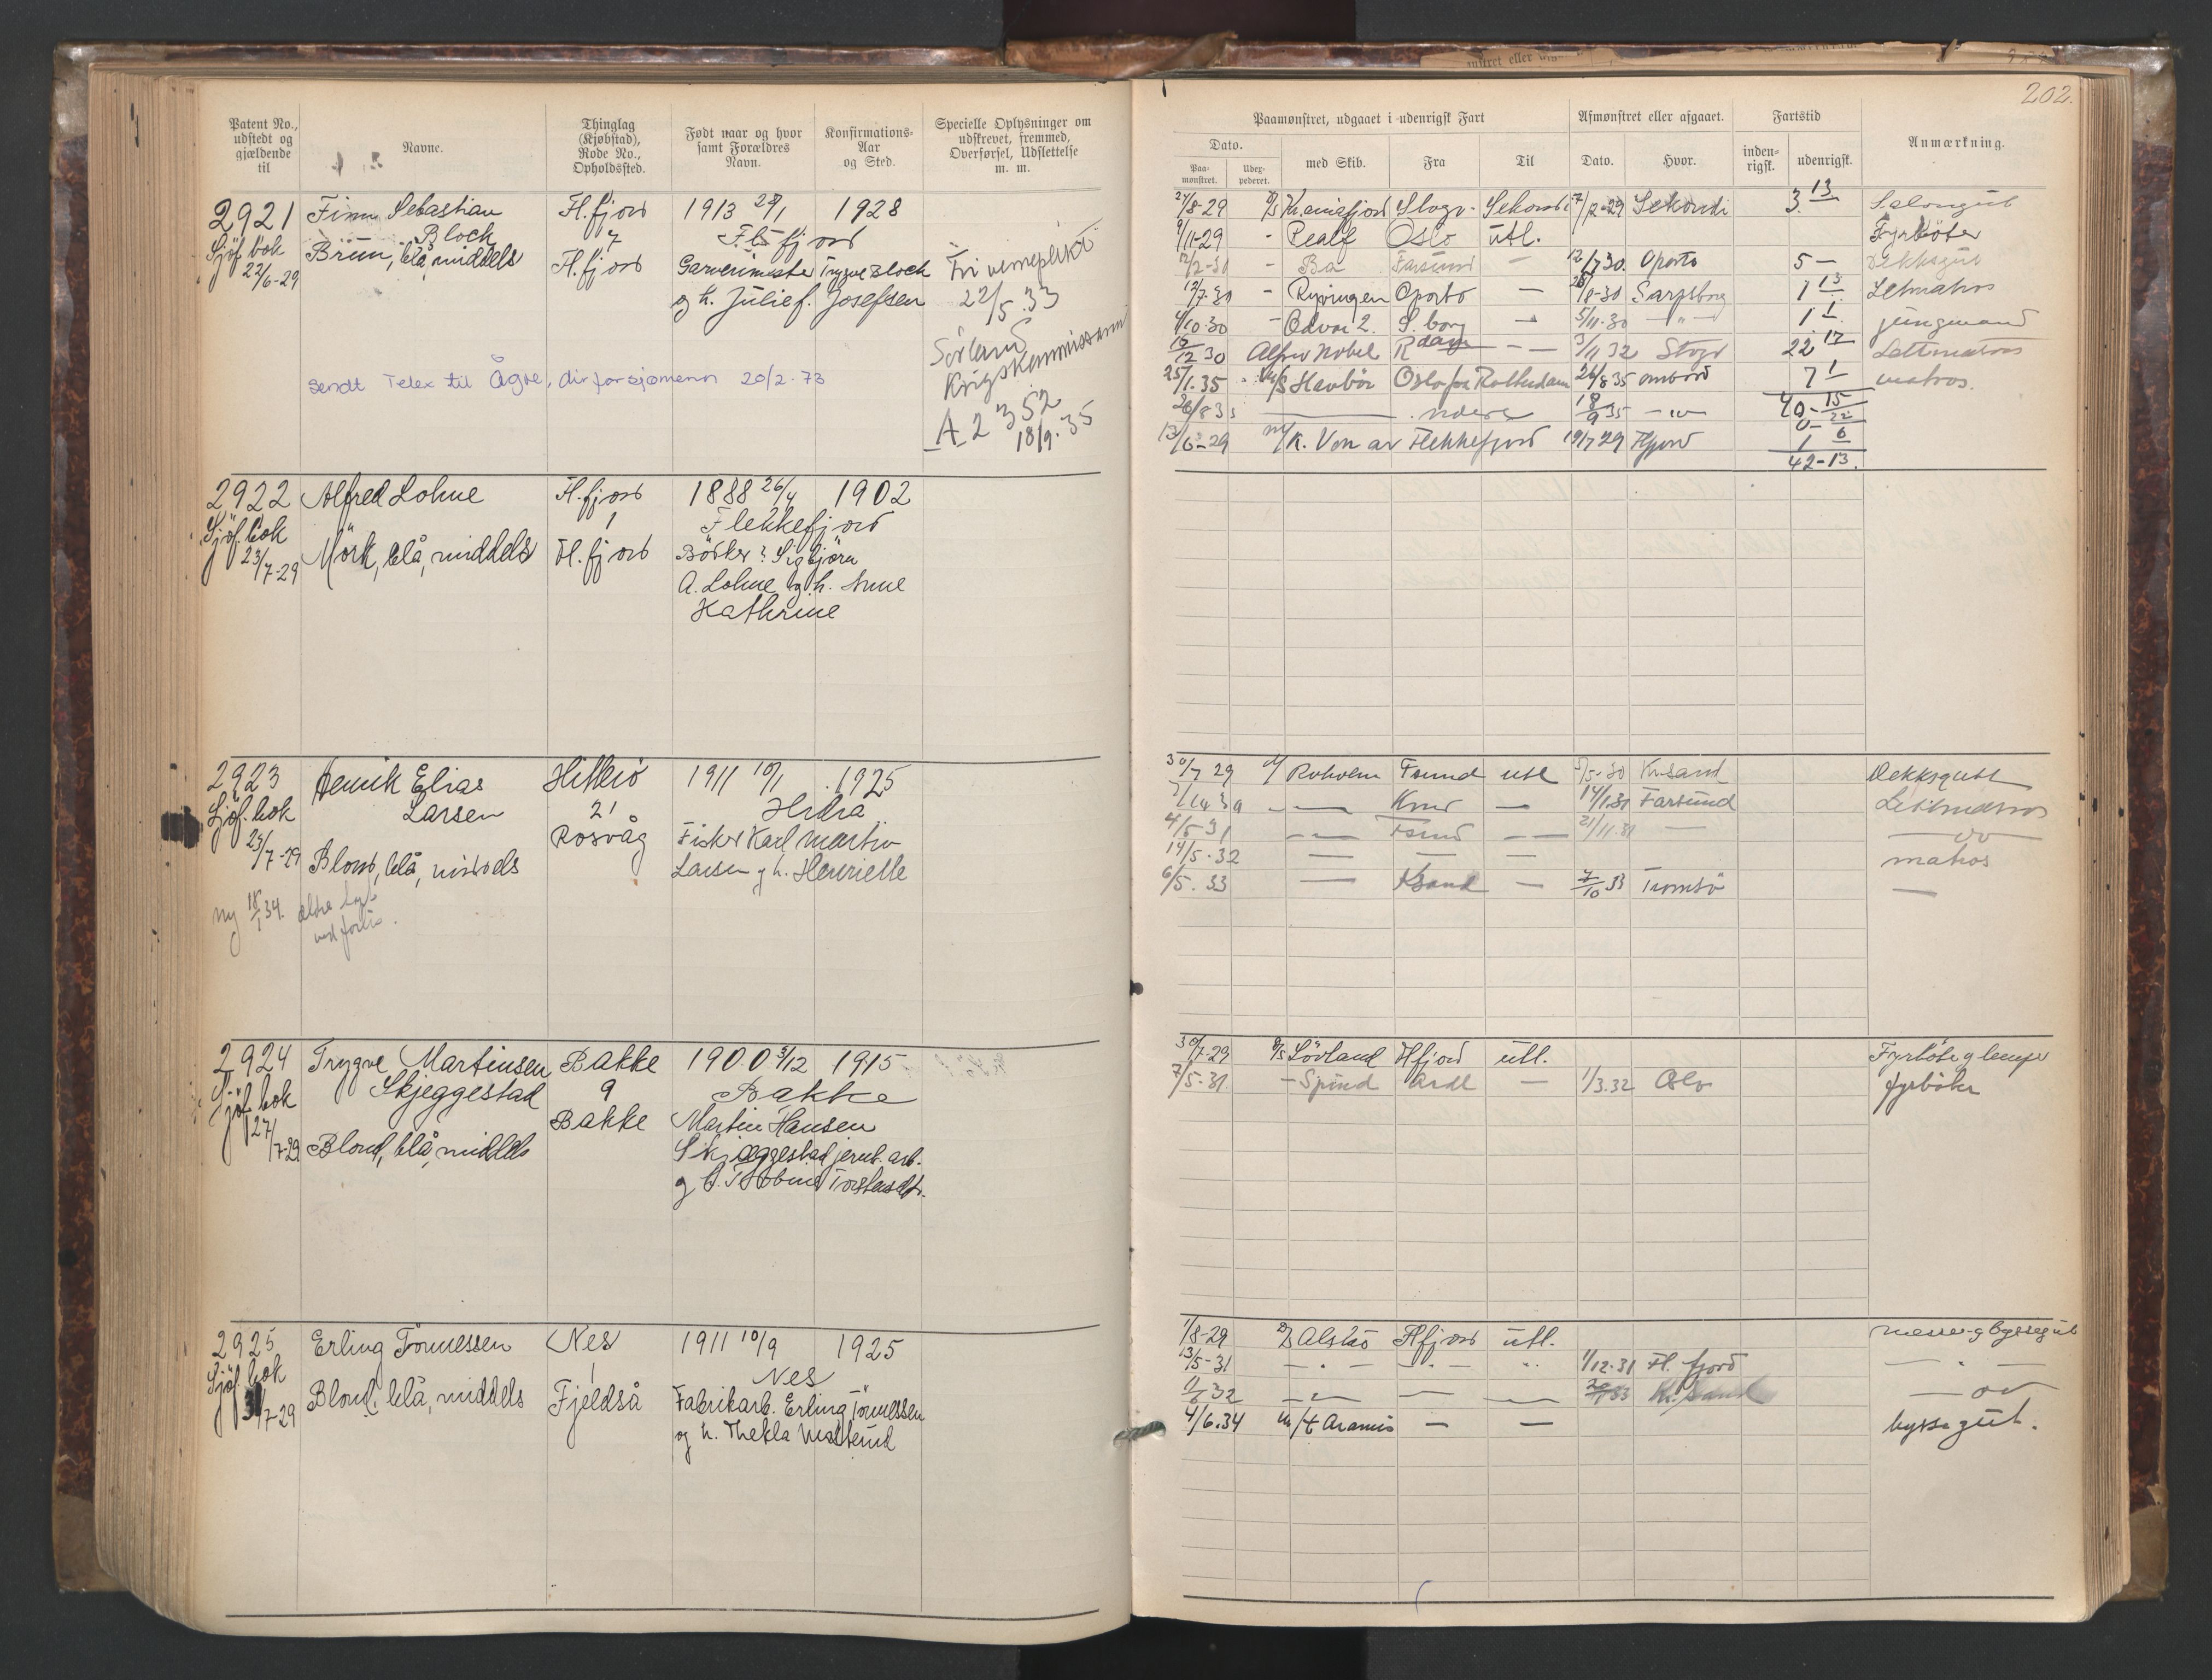 202.
Patent No., udstedt og gjældende til
Navne.
Thinglag (Kjøbstad), Rode No., Opholdssted.
Født naar og hvor samt Forældres Navn.
Konfirmations-Aar og Sted.
Specielle Oplysninger om udskrevet, fremmed, Overførsel, Udslettelse m. m.
Paamønstret, udgaaet i udenrigsk Fart
Afmønstret eller afgaaet.
Fartstid
Anmærkning.
Dato.
Paamønstret.
Udexpederet.
med Skib.
Fra
Til
Dato.
Hvor.
indenrigsk.
udenrigsk.
2921 Finn Sebastian Fl.fjord 1913 28/1 1928
Block 7 Fl.fjord
Sjöf.bok Brun, blå, middels Fl.fjord Garverimester Trygve Block
22/6-29 og h. Julie f. Josefsen
Fri verneplikt
22/5.33
Sörland
Krigskommissariat
A 2352
18/9.35
sendt Telex til Ågre, dir for sjømenn 20/2.73
27/8-29 Kr.aniafjord Slagv. Sekondi 7/12-29 Sekondi 3 13 Salongut
9/11-29 - Realf Oslo utl. Fyrböter
12/2-30 - Ba Farsund - 12/7 30. Oporto 5 - Dekksgut
12/7.30 - Ryvingen Oporto - 28/8-30 Sarpsborg 1 13 Letmatros
4/10.30 - Odvar 2. S.borg - 5/11.30 - " - 1 1 jungmand
15/12 30 Alfred Nobel R dam - - 3/11 32 Stvgr 22 17 Lettmatros
25/1.35 M/S Havbör Oslo Rotterdam 26/8 35 ombord 7 1 matros.
26/8 35 videre 18/9 35 - " - 40-15
0-22
13/6-29 m/k. Von av Flekkefjord 19/7 29 Flfjord 1 6
42-13.
2922 Alfred Lohne Fl.fjord 1888 26/4 1902
Sjöf.bok 1 Flekkefjord
23/7-29 Mörk, blå, middels Fl.fjord Bödker Sigbjörn
A. Lohne og h. Anne
Kathrine
2923 Henrik Elias Hitterö 1911 10/1 1925
Sjöf.bok Larsen 21 Hidra
23/7-29 Blond, blå, middels Rosvåg Fisker Karl Martin
Larsen og h. Henriette
ny 18/1 34. eldre
ved forlis.
30/7 29 Roholm Fsund utl /5-30 Kr.sand Dekksgutt
- - - 14/1.31 Farsund Lettmatros
4/5 31 - - Fsund - - 21/11.31 - do
14/5.32 - - - matros
6/5. 33 - Ksand - 7/10 33 Tromsö -
2924 Trygve Martinsen Bakke 1900 3/12 1915
Sjöf.bok Skjeggestad 9 Bakke
27/7-29 Blond, blå, middels Bakke Martin Hansen
Skjæggestad jernb.arb.
30/7-29 D/S Lövland Flfjord utl. Fyrböter og lemper
7/5-31 - Spind Ardl - 1/3.32 Oslo fyrböter
2925 Erling Tönnessen Nes 1911 10/9 1925
Sjöf.bok 1 Nes
31/7-29 Blond, blå, middels Fjeldså Fabrikarb. Erling Tönnessen
og h. Thekla
1/8-29 D/S Alskö Flfjord utl. messe- og byssegut
13/5-31 - " - - " - " 1/12.31 Fl.fjord - " -
32 - " - - - 33 Kr.sand - do
4/6.34 m/t Aramis - - byssegut.